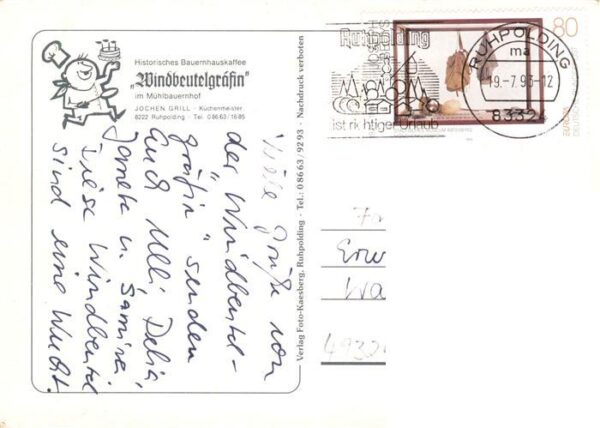 Historisches Bauernhauskaffee
„Windbeutelgräfin"
im Mühlbauernhof
JOCHEN GRILL · Küchenmeister
8222 Ruhpolding · Tel. 08663/1685
Viele Grüße von
der „Windbeutel-
gräfin" senden
Euch Ulli, Delia,
Janette u. Samira.
Diese Windbeutel
sind eine Wucht.
Verlag Foto-Kaesberg, Ruhpolding · Tel.: 08663/9293 · Nachdruck verboten
Ruhpolding
ist richtiger Urlaub
RUHPOLDING
ma
19.-7.93-12
8332
80
Erw
Wa
4932